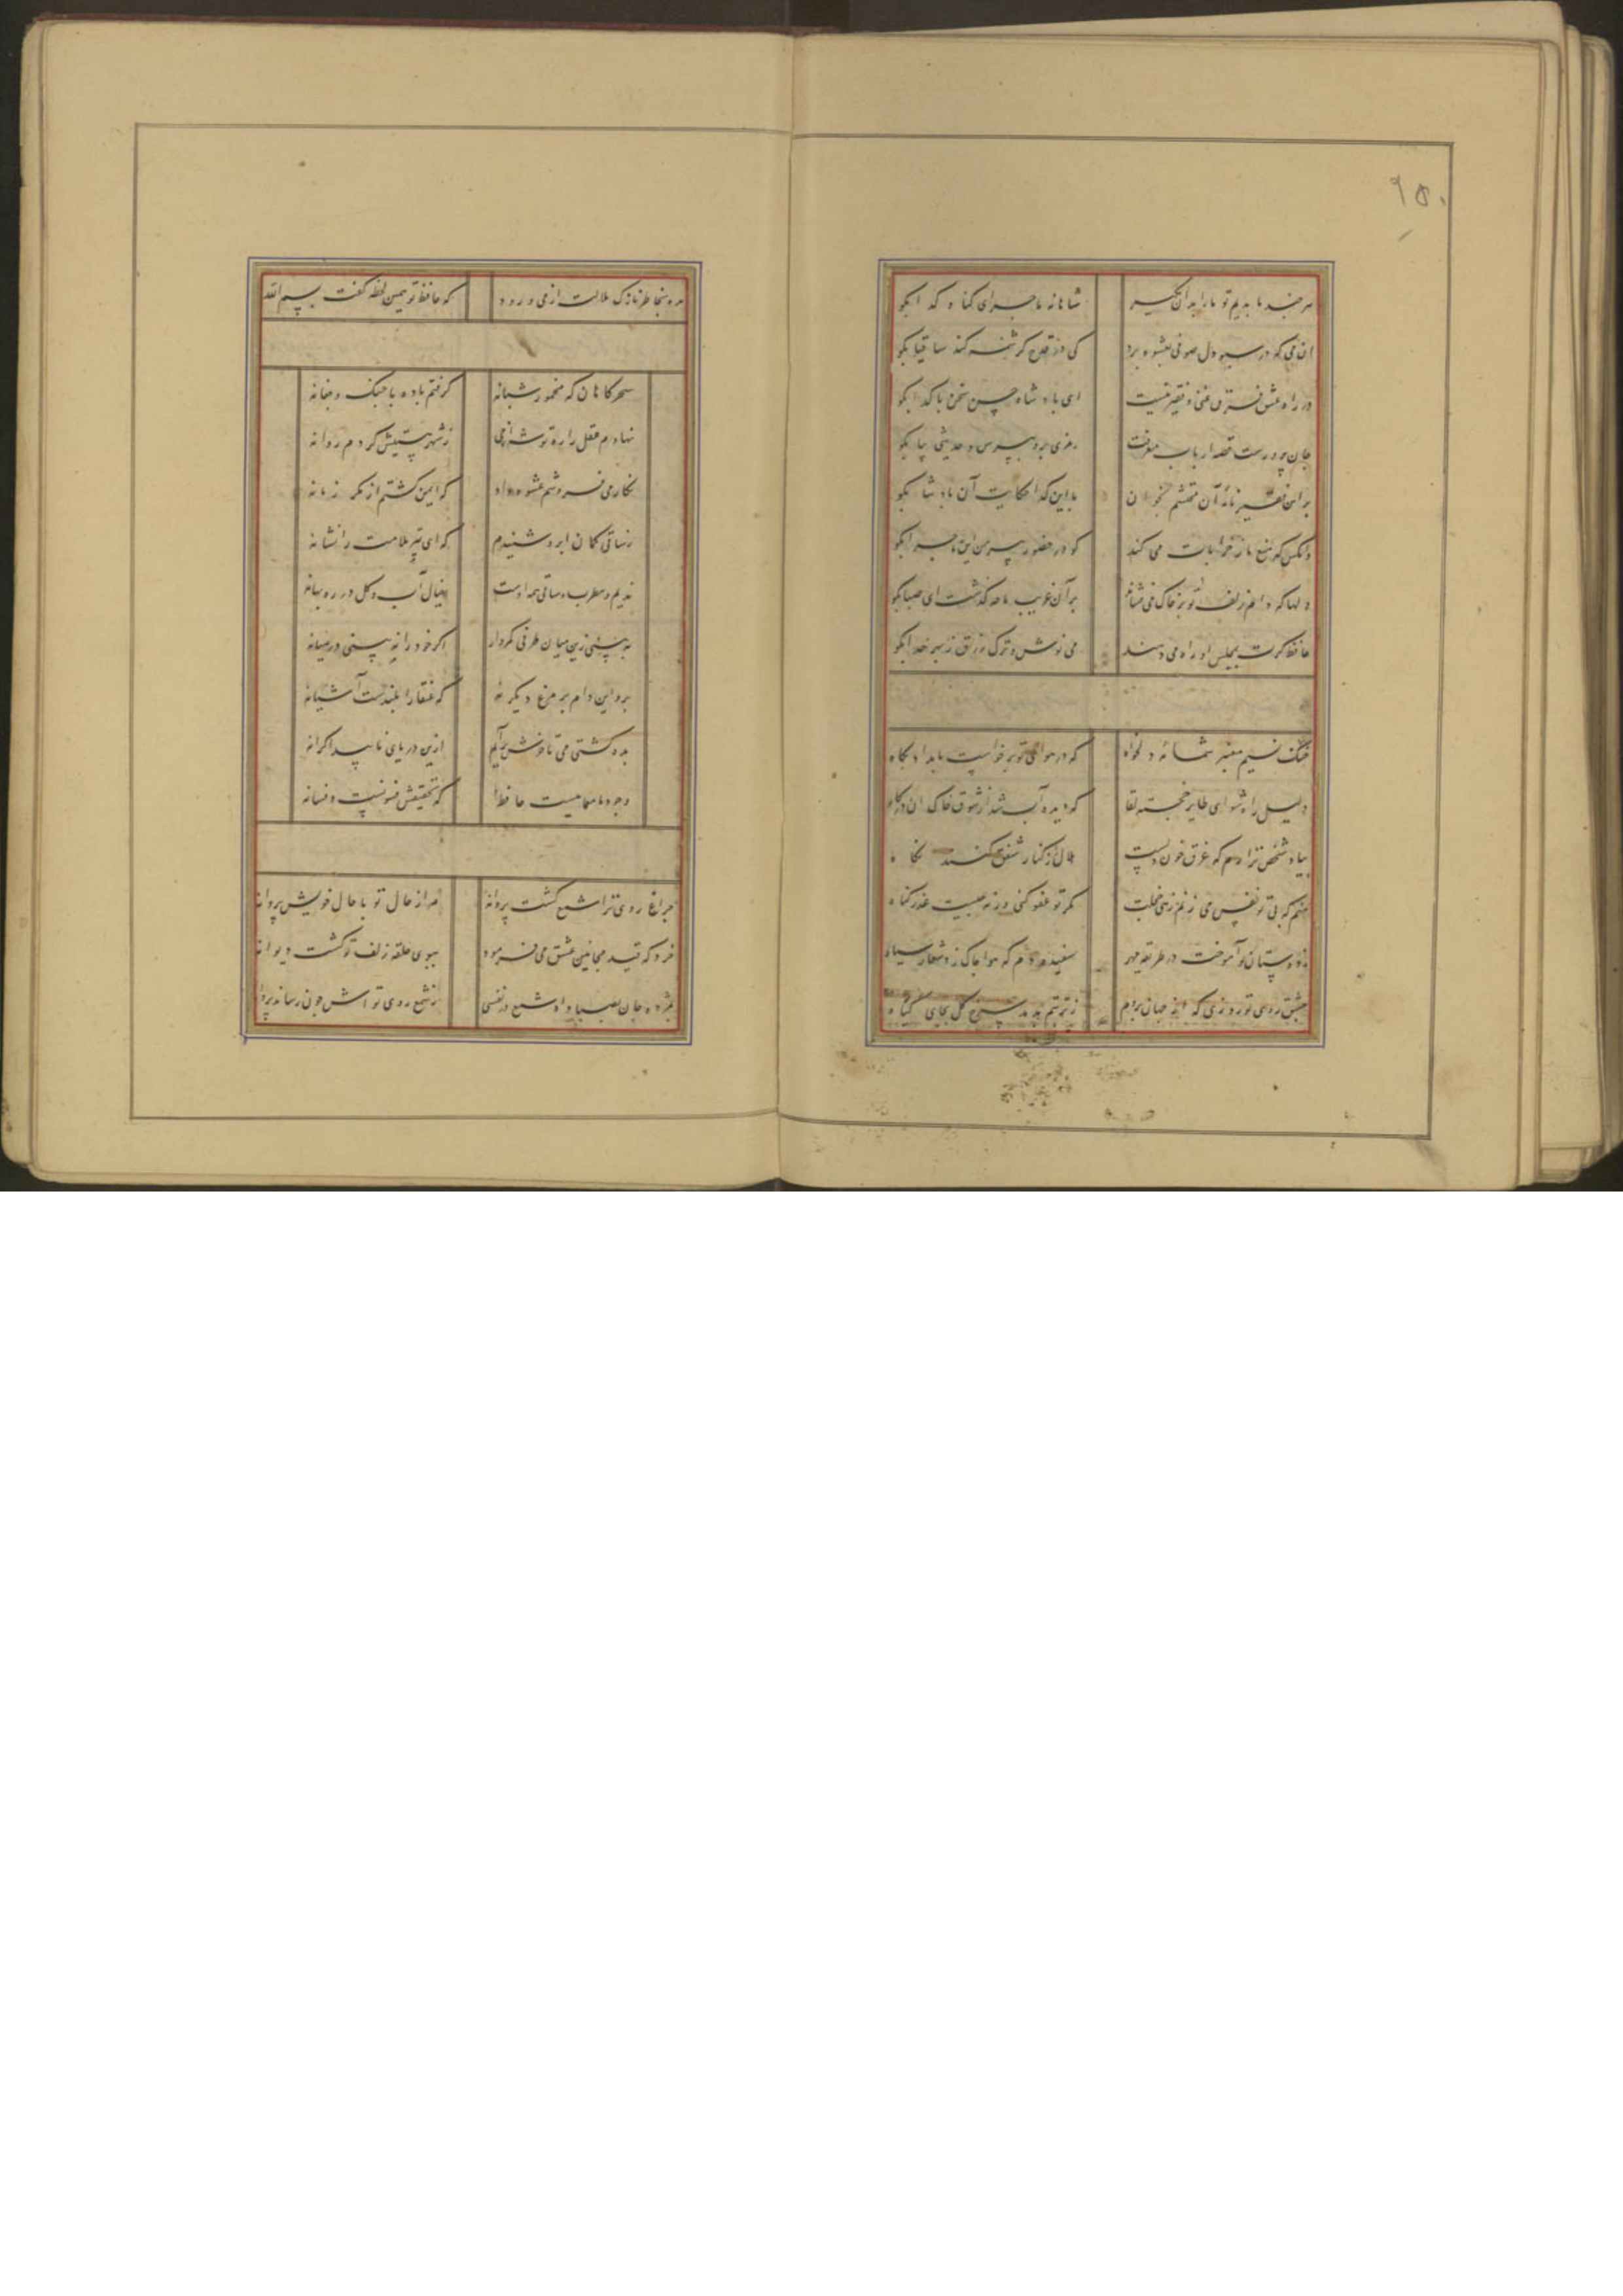 ۹۵۰
هر چند ما بدیم تو ما را بدان مگیر شاهانه ماجرای گناه گدا بگو
آن می که در سبو دل صوفی بعشوه برد کی در قدح کرشمه کند ساقیا بگو
در راه عشق فرق غنی و فقیر نیست ای پادشاه حسن سخن با گدا بگو
جان پرورست قصه ارباب معرفت رمزی برو بپرس و حدیثی بیا بگو
بر این فقیر نامه آن محتشم بخوان با این گدا حکایت آن پادشا بگو
وانکس که منع ما ز خرابات می کند گو در حضور پیر من این ماجرا بگو
دلها که دام زلف تو بر خاک می فشاند بر آن غریب ما چه گذشت ای صبا بگو
حافظ گرت بمجلس او راه می دهند می نوش و ترک زرق ز بهر خدا بگو
خنک نسیم معنبر شمامه دلخواه که در هوای تو برخواست بامداد پگاه
دلیل راه شو ای طایر خجسته لقا که دیده آب شد از شوق خاک آن درگاه
بیاد شخص نزارم که غرق خون دلست هلال ز کنار شفق کنند نگاه
منم که بی تو نفس می زنم زهی خجلت مگر تو عفو کنی ورنه چیست عذر گناه
ز دوستان تو آموخت در طریقه مهر سفیده دم که هوا چاک زد شعار سیاه
بعشق روی تو روزی که از جهان بروم ز تربتم بدمد سرخ گل بجای گیاه
مده بخاطر نازک ملالت از من زود که حافظ تو همین لحظه گفت بسم الله
سحرگاهان که مخمور شبانه گرفتم باده با چنگ و چغانه
نهادم عقل را ره توشه از می ز شهر هستیش کردم روانه
نگار می فروشم عشوه داد که ایمن گشتم از مکر زمانه
ز ساقی کمان ابرو شنیدم که ای تیر ملامت را نشانه
ندیم و مطرب و ساقی همه اوست خیال آب و گل در ره بهانه
نه بینی زین میان طرفی کمروار اگر خود را نه بینی در میانه
برو این دام بر مرغ دگر نه که عنقا را بلندست آشیانه
بده کشتی می تا خوش برآیم ازین دریای ناپیدا کرانه
وجود ما معماییست حافظ که تحقیقش فسونست و فسانه
چراغ روی ترا شمع گشت پروانه مرا ز حال تو با حال خویش پروا نه
خرد که قید مجانین عشق می فرمود ببوی حلقه زلف تو گشت دیوانه
بمژده جان بصبا داد شمع در نفسی ز شمع روی تو اش چون رساند پروانه